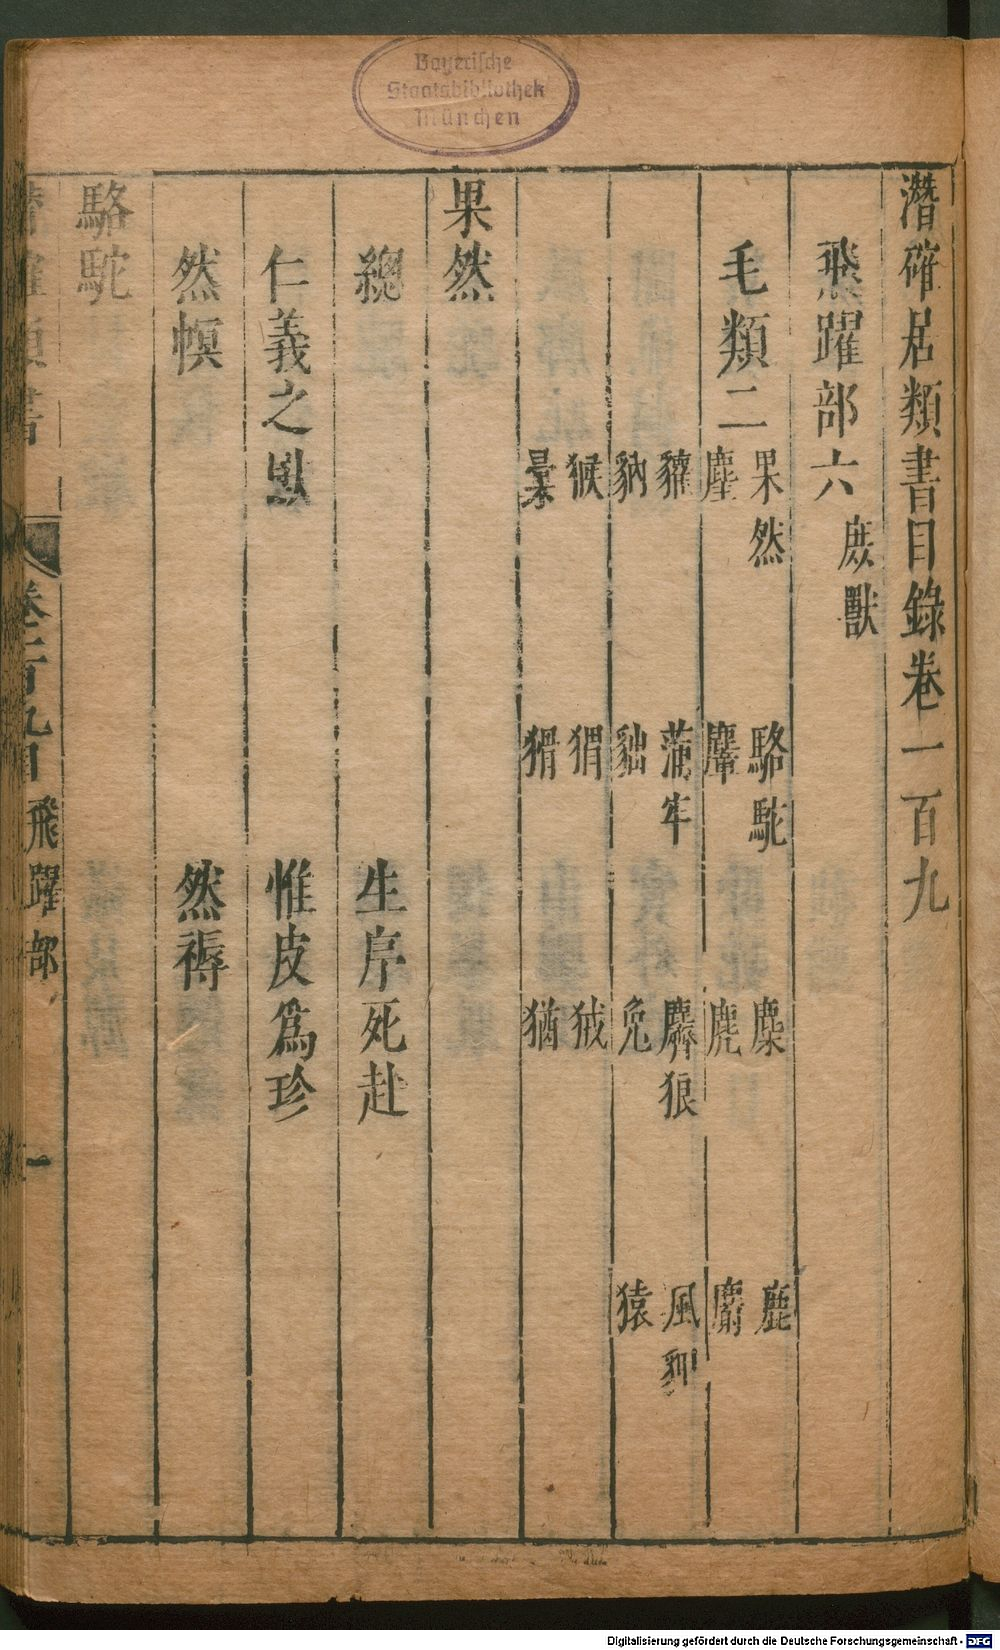 Bayerische
Staatsbibliothek
München
潛確居類書目錄卷一百九
飛躍部六 庶獸
毛類二
果然 駱駝 麋 鹿
麈 麞 麂 麝
貛 蒲牢 麟狼 風狸
豽 貀 兔 猿
猴 猬 狨
猾 猶
果然
總
生序死赴
仁義之獸
惟皮為珍
然幎
然褥
駱駝
潛確類書 卷一百九目 飛躍部 一
Digitalisierung gefördert durch die Deutsche Forschungsgemeinschaft - DFG